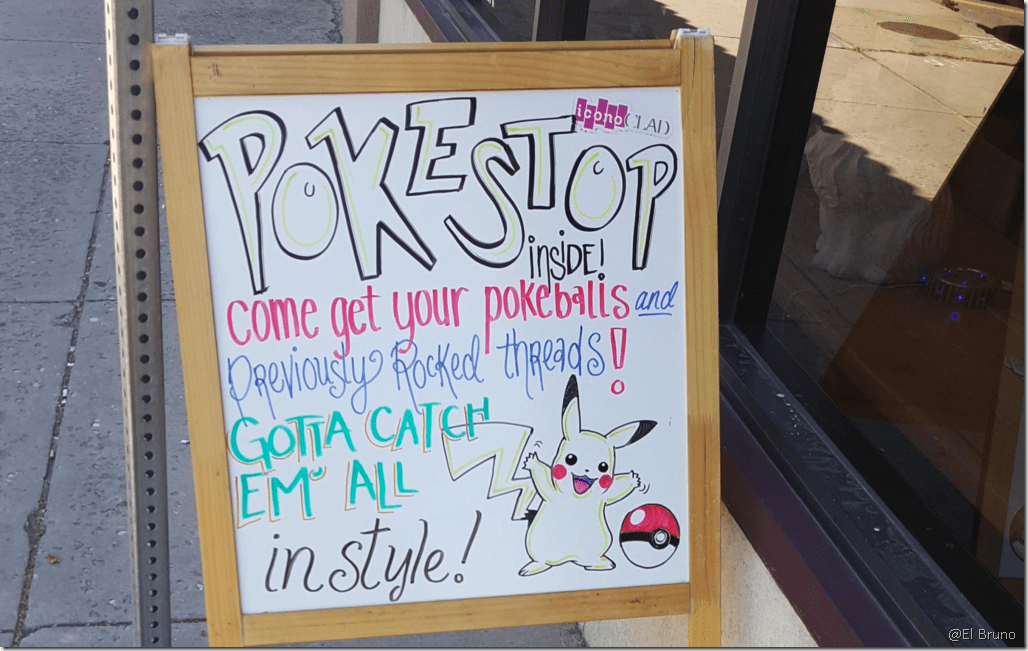 POKESTOP
iconoCLAD
inSiDE!
come get your pokeballs and
previously Rocked threads!
GOTTA CATCH
EM' ALL
in style!
@El Bruno